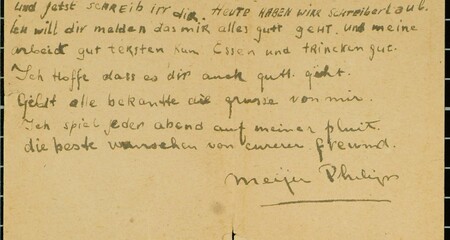 und jetst SCHREIB irr die. HEUTE HABEN WIRR SCHREIBERLAUB.
Ich will dir melden das mir alles gutt geht. und meine
arbeit gut leksten kun Essen und trincken gut.
Ich Hoffe dass es dir auch gutt. geht.
alle bekantte grusse von mir.
Ich spiel jeder abend auf meiner pluit.
die beste wunschen von eurer freund.
Meijer Philips